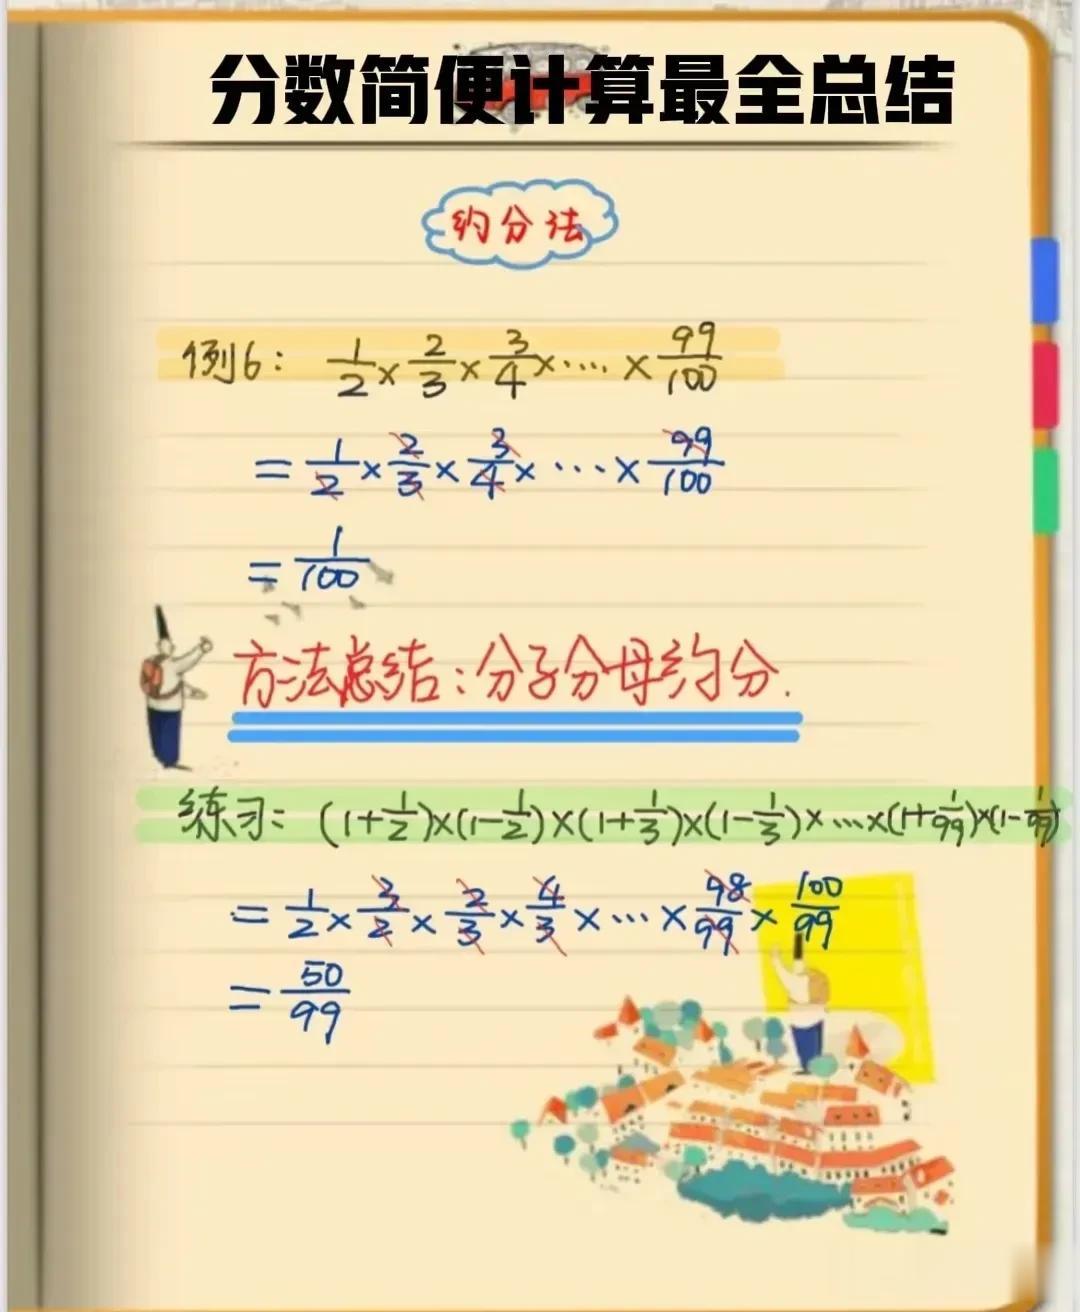 分数简便计算最全总结
约分法
例6: 1/2 × 2/3 × 3/4 × …. × 99/100
= 1/2 × 2/3 × 3/4 × … × 99/100
= 1/100
方法总结:分子分母约分.
练习: (1+1/2)×(1-1/2)×(1+1/3)×(1-1/3)×…×(1+1/99)×(1-1/99)
= 1/2 × 3/2 × 2/3 × 4/3 × … × 98/99 × 100/99
= 50/99